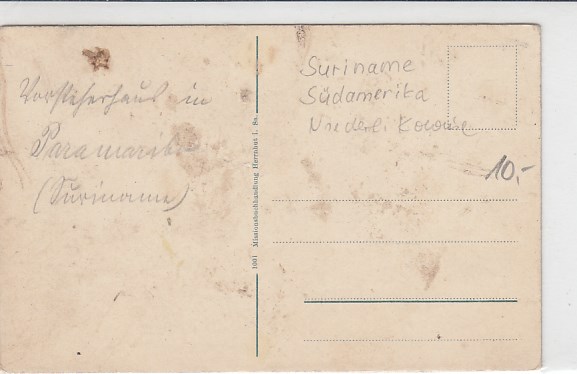 Vorsteherhaus in
Paramaribo
(Suriname)
1001 Missionsbuchhandlung Herrnhut i. Sa.
Suriname
Südamerika
Niederl. Kolonie
10.-